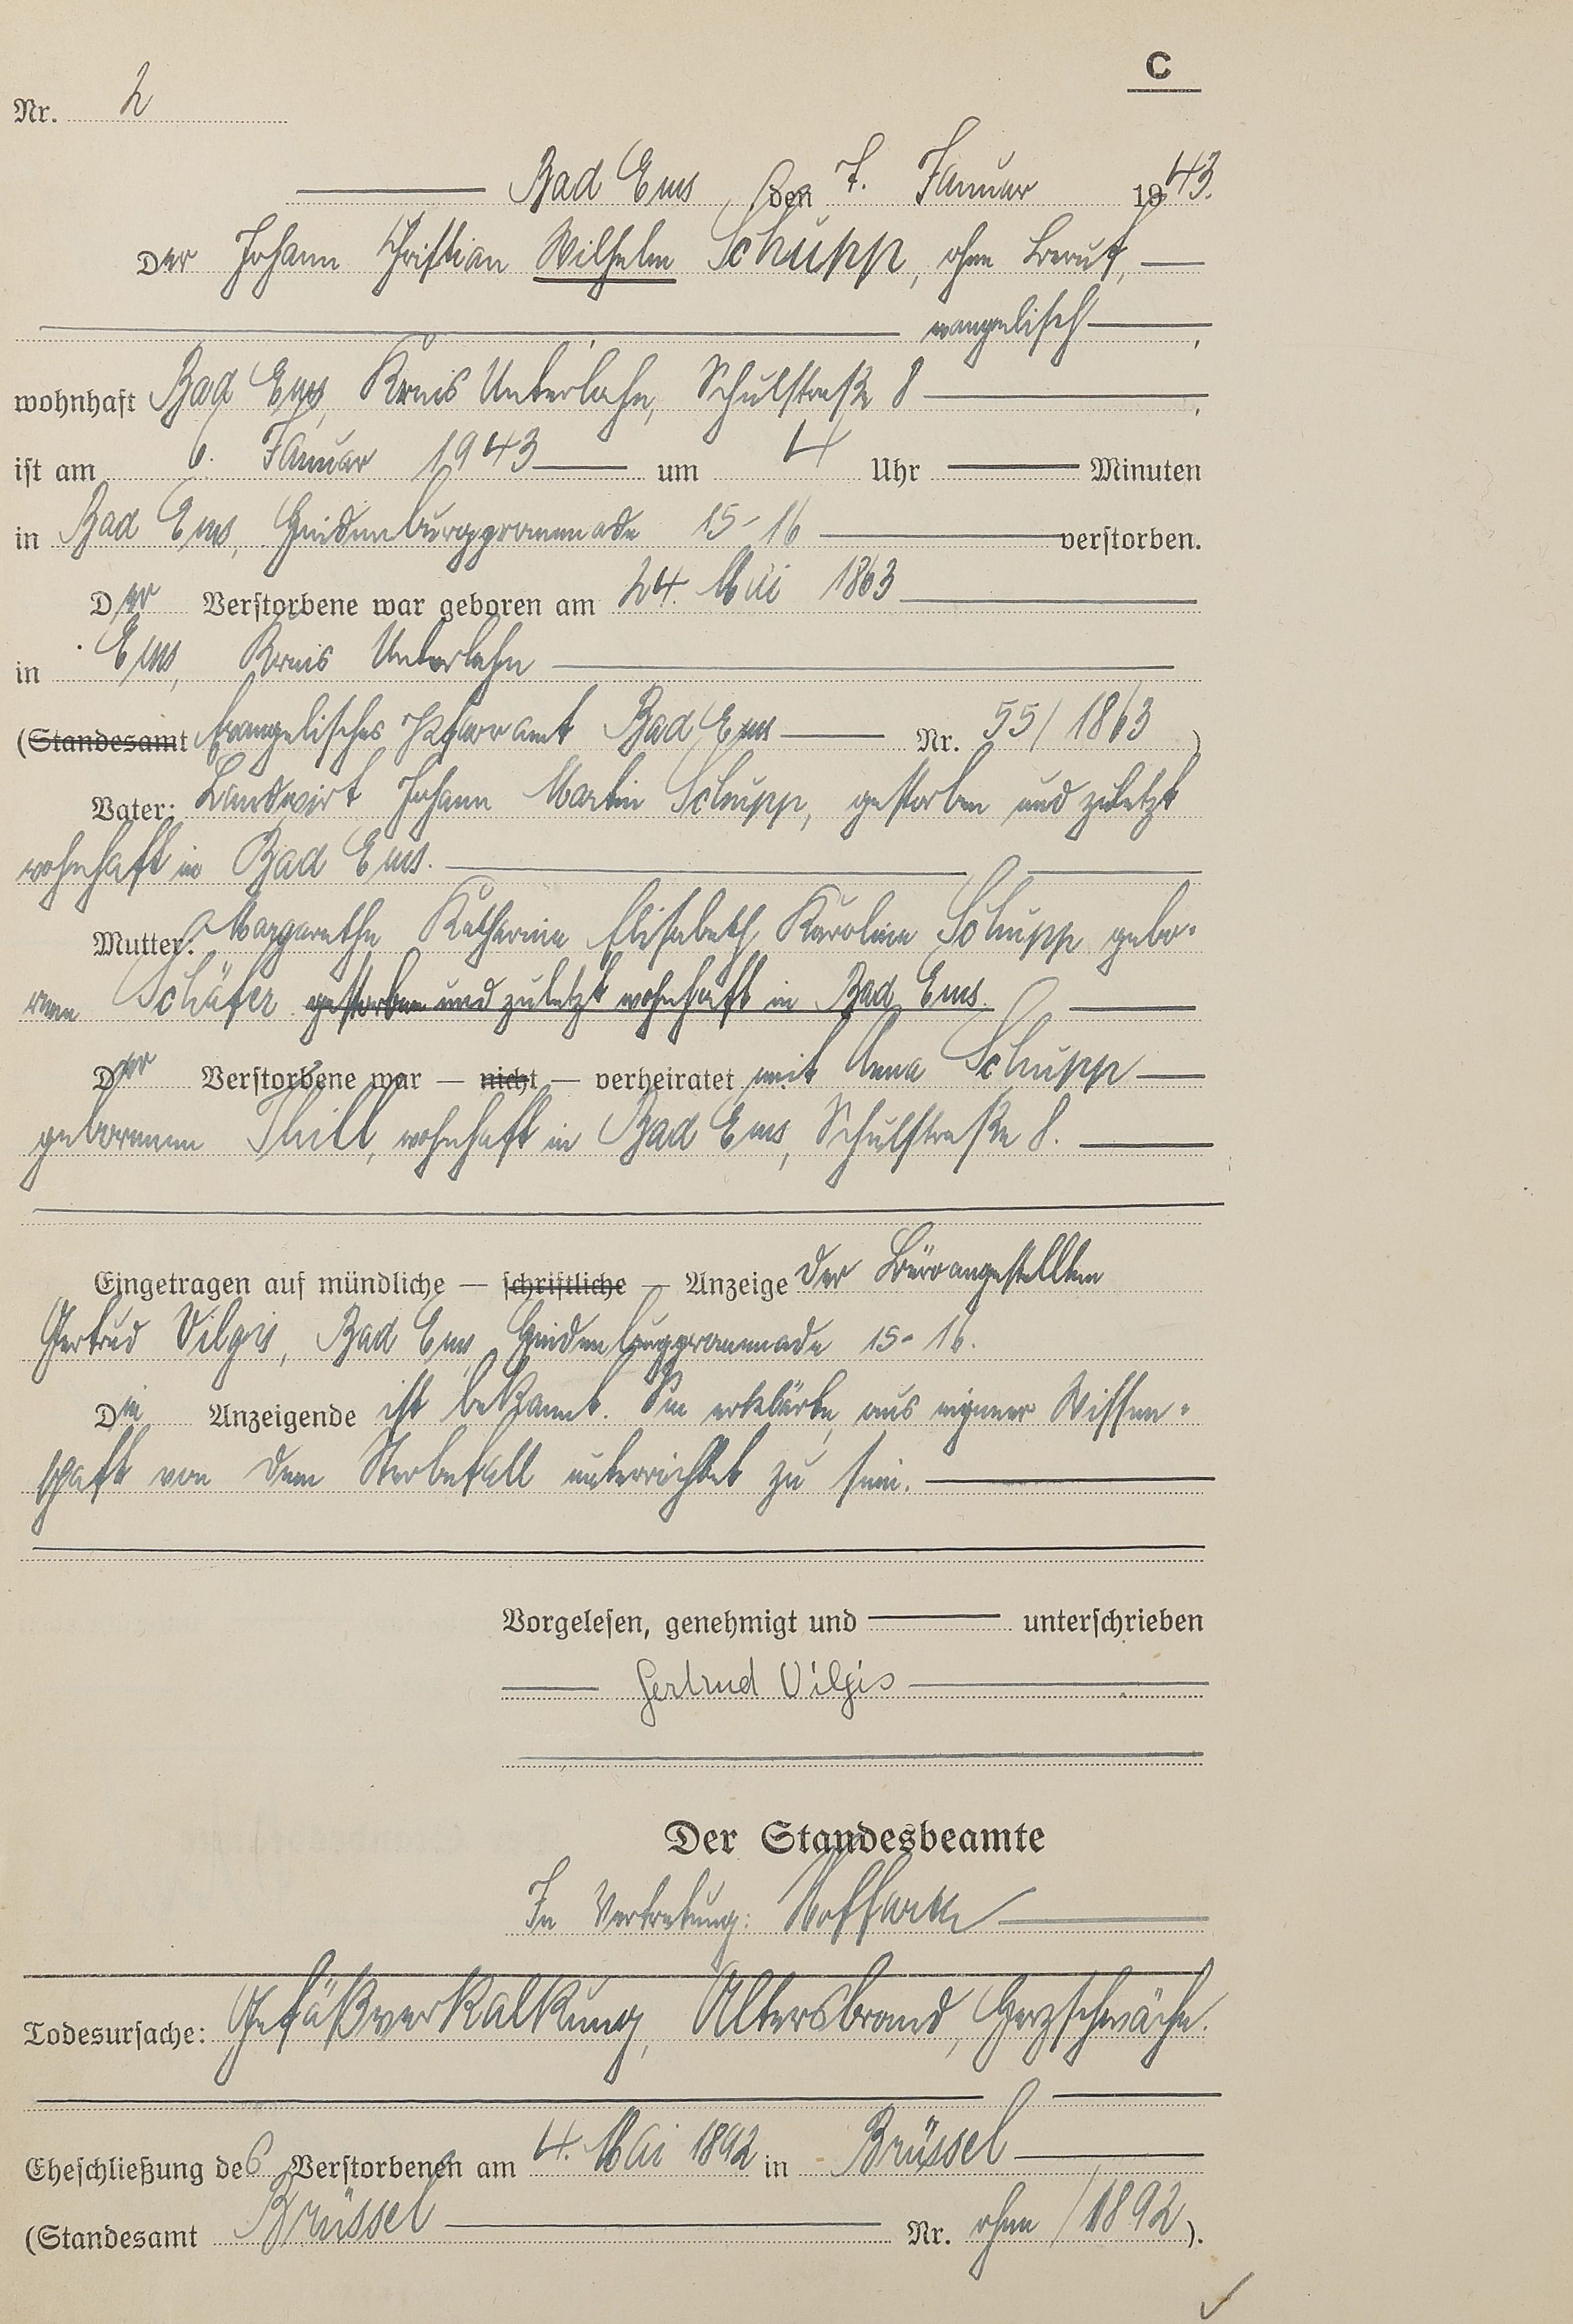 C
Nr. 2
Bad Ems, den 7. Januar 1943.
Der Johann Christian Wilhelm Schupp, ohne Beruf,
evangelisch,
wohnhaft Bad Ems, Kreis Unterlahn, Schulstraße 8,
ist am 6. Januar 1943 um 4 Uhr Minuten
in Bad Ems, Hindenburgpromenade 15-16 verstorben.
Der Verstorbene war geboren am 24. Mai 1863
in Ems, Kreis Unterlahn
(Standesamt Evangelisches Pfarramt Bad Ems Nr. 55/1863)
Vater: Landwirt Johann Martin Schupp, gestorben und zuletzt
wohnhaft in Bad Ems.
Mutter: Margarethe Katharine Elisabeth Karoline Schupp gebo-
rene Schäfer gestorben und zuletzt wohnhaft in Bad Ems.
Der Verstorbene war — nicht — verheiratet mit Anna Schupp
geborenen Thill, wohnhaft in Bad Ems, Schulstraße 8.
Eingetragen auf mündliche — schriftliche — Anzeige der Büroangestellten
Gertrud Vilgis, Bad Ems, Hindenburgpromenade 15-16.
Die Anzeigende ist bekannt. Sie erklärte, aus eigener Wissen-
schaft von dem Sterbefall unterrichtet zu sein.
Vorgelesen, genehmigt und unterschrieben
Gertrud Vilgis
Der Standesbeamte
In Vertretung:
Todesursache: Gefäßverkalkung, Altersbrand, Herzschwäche.
Eheschließung des Verstorbenen am 4. Mai 1892 in Brüssel
(Standesamt Brüssel Nr. ohne/1892).